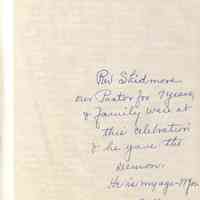 Rev Skidmore
our Pastor for 7 years
& family were at
this celebration
& he gave the
sermon.
He is my age - Mon